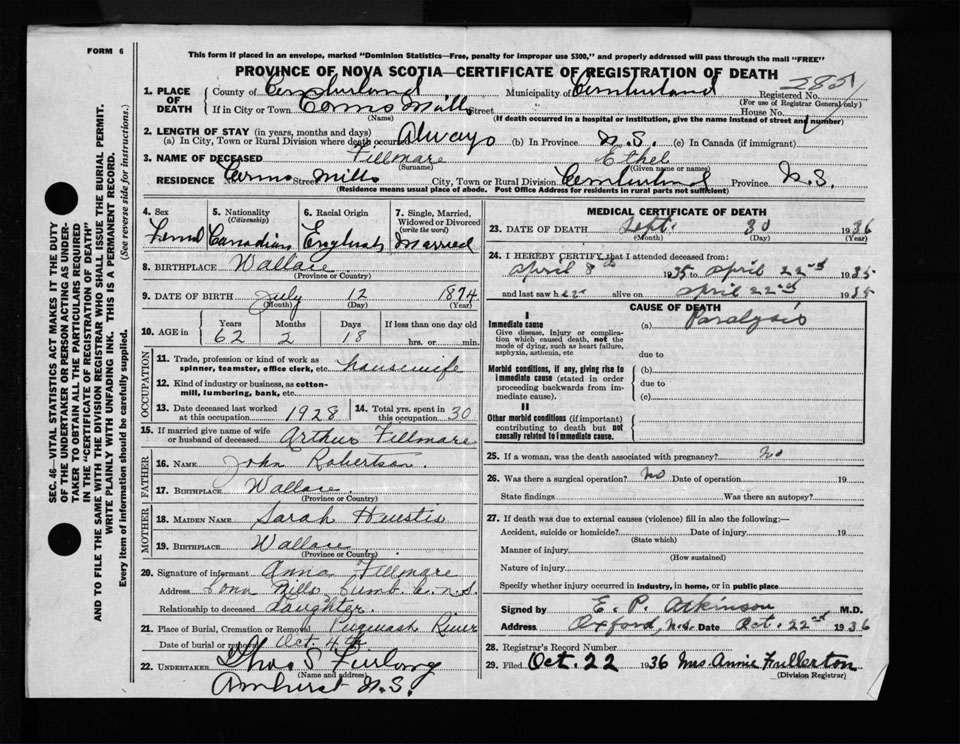 FORM 6
This form if placed in an envelope, marked "Dominion Statistics—Free, penalty for improper use $300," and properly addressed will pass through the mail "FREE"
PROVINCE OF NOVA SCOTIA—CERTIFICATE OF REGISTRATION OF DEATH
2851
1. PLACE OF DEATH County of Cumberland Municipality of Cumberland Registered No.
(For use of Registrar General only)
If in City or Town Conns Mills Street House No.
(Name) (If death occurred in a hospital or institution, give the name instead of street and number)
2. LENGTH OF STAY (in years, months and days)
(a) In City, Town or Rural Division where death occurred Always (b) In Province N.S. (c) In Canada (if immigrant)
3. NAME OF DECEASED Fillmore Ethel
(Surname) (Given name or names)
RESIDENCE No. Conns Street Mills City, Town or Rural Division Cumberland Province N.S.
(Residence means usual place of abode. Post Office Address for residents in rural parts not sufficient)
SEC. 46—VITAL STATISTICS ACT MAKES IT THE DUTY
OF THE UNDERTAKER OR PERSON ACTING AS UNDER-
TAKER TO OBTAIN ALL THE PARTICULARS REQUIRED
IN THE "CERTIFICATE OF REGISTRATION OF DEATH"
AND TO FILE THE SAME WITH THE DIVISION REGISTRAR WHO SHALL ISSUE THE BURIAL PERMIT.
WRITE PLAINLY WITH UNFADING INK. THIS IS A PERMANENT RECORD.
Every item of information should be carefully supplied. (See reverse side for instructions.)
4. Sex 5. Nationality (Citizenship) 6. Racial Origin 7. Single, Married, Widowed or Divorced (write the word)
Canadian English Married
8. BIRTHPLACE Wallace
(Province or Country)
9. DATE OF BIRTH July 12 1874
(Month) (Day) (Year)
10. AGE in Years Months Days If less than one day old
62 2 18 hrs. or min.
OCCUPATION
11. Trade, profession or kind of work as spinner, teamster, office clerk, etc. housewife
12. Kind of industry or business, as cotton-mill, lumbering, bank, etc.
13. Date deceased last worked at this occupation 1928 14. Total yrs. spent in this occupation 30
15. If married give name of wife or husband of deceased Arthur Fillmore
FATHER
16. NAME John Robertson.
17. BIRTHPLACE Wallace
(Province or Country)
MOTHER
18. MAIDEN NAME Sarah Huestis
19. BIRTHPLACE Wallace
(Province or Country)
20. Signature of informant Anna Fillmore
Address Conn Mills Cumb. Co. N.S.
Relationship to deceased daughter.
21. Place of Burial, Cremation or Removal Pugwash River
Date of burial or removal Oct. 4th
22. UNDERTAKER Thos S Furlong
(Name and address)
Amherst N.S.
MEDICAL CERTIFICATE OF DEATH
23. DATE OF DEATH Sept. 30 1936
(Month) (Day) (Year)
24. I HEREBY CERTIFY that I attended deceased from:
April 8th 1935 April 22nd 1935
and last saw her alive on April 22nd 1935
CAUSE OF DEATH
I
Immediate cause (a) Paralysis
Give disease, injury or complication which caused death, not the mode of dying, such as heart failure, asphyxia, asthenia, etc
due to
Morbid conditions, if any, giving rise to immediate cause (stated in order proceeding backwards from immediate cause). (b)
due to
(c)
II
Other morbid conditions (if important) contributing to death but not causally related to immediate cause.
25. If a woman, was the death associated with pregnancy? No
26. Was there a surgical operation? No Date of operation 19
State findings Was there an autopsy?
27. If death was due to external causes (violence) fill in also the following:—
Accident, suicide or homicide? Date of injury 19
(State which)
Manner of injury
(How sustained)
Nature of injury
Specify whether injury occurred in industry, in home, or in public place
Signed by E. P. Atkinson M.D.
Address Oxford, N.S. Date Oct. 22nd 1936
28. Registrar's Record Number
29. Filed Oct. 22 1936 Mrs. Annie Fullerton
(Division Registrar)